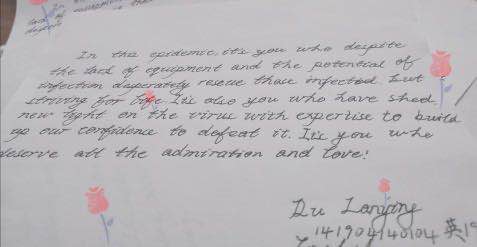 In
lack of
In the epidemic, it's you who despite
the lack of equipment and the potential of
infection desperately rescue those infected but
striving for life. It's also you who have shed
new light on the virus with expertise to build
up our confidence to defeat it. It's you who
deserve all the admiration and love!
Du
141904140104 英19